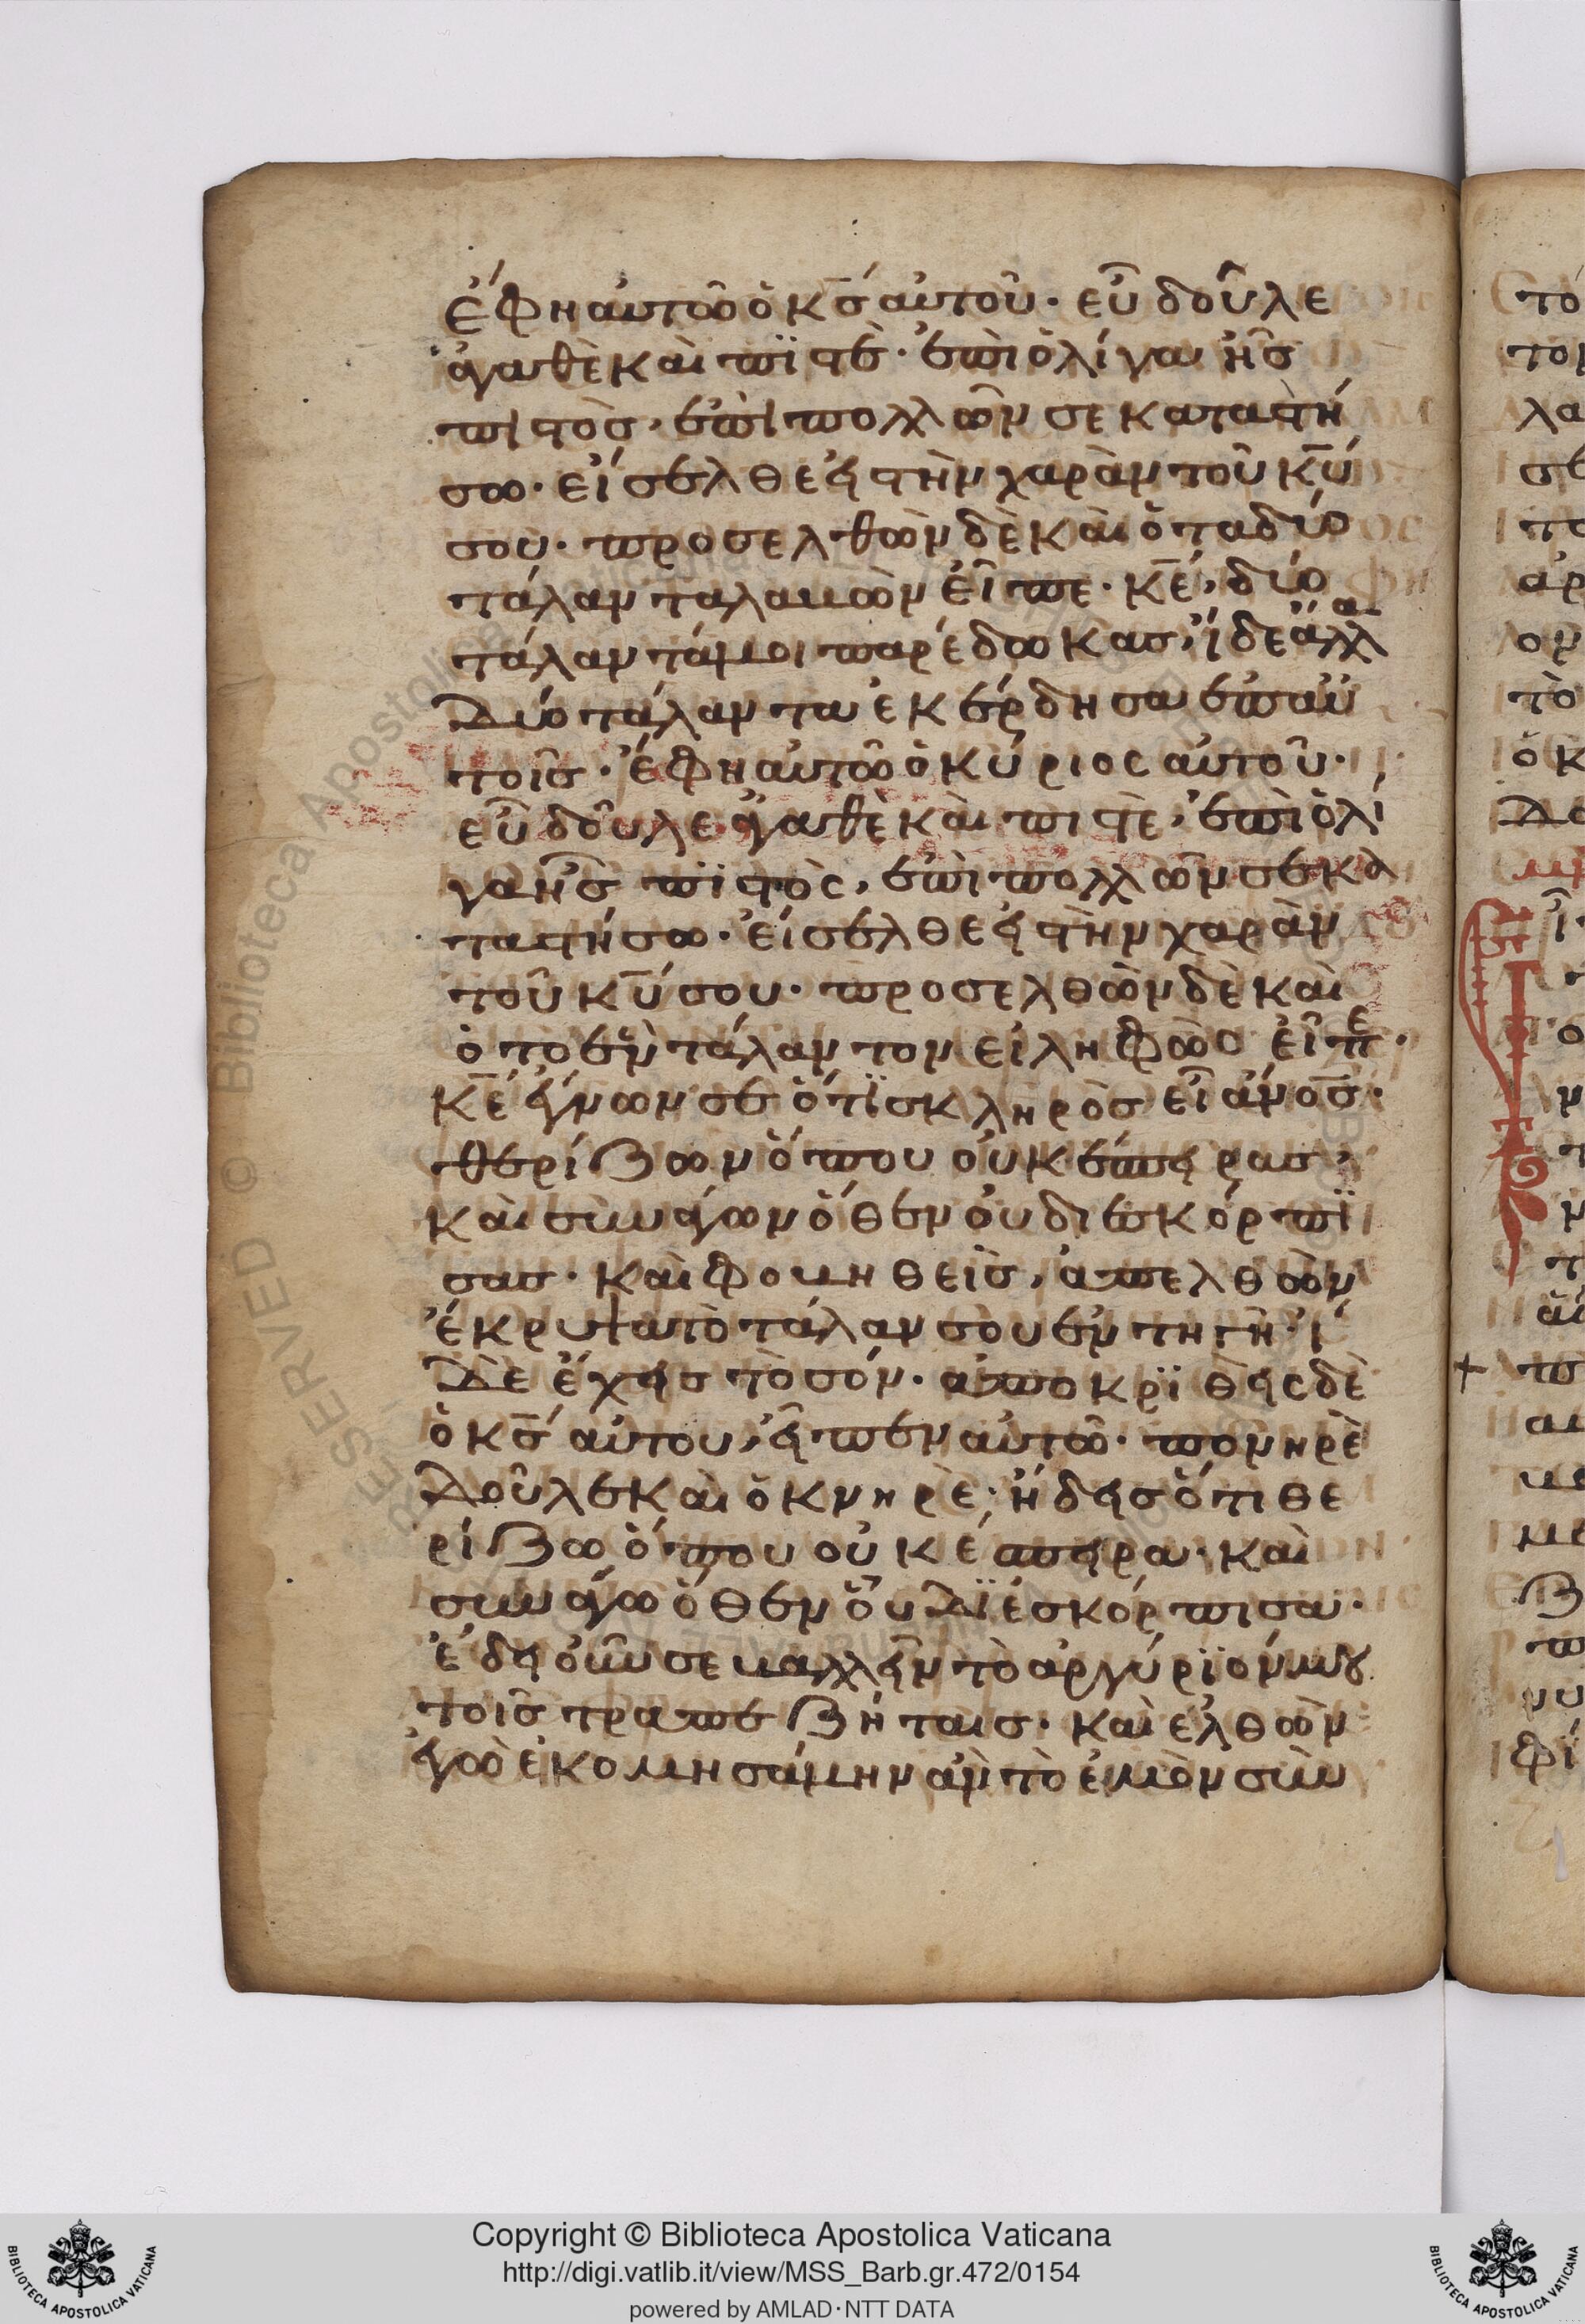 ἔφη αὐτῶ ὁ κ̅ς́ αὐτοῦ· εὖ δοῦλε
ἀγαθὲ καὶ πϊστὲ· ἐπὶ ὀλίγα ἦς
πιστὸς, ἐπὶ πολλῶν σε καταστή
σω· εἴσελθε εἰς τὴν χαρὰν τοῦ κ̅ύ
σου· προσελθὼν δὲ καὶ ὁ τα δύο
τάλαντα λαβὼν εἶπε· κ̅έ, δύο
τάλαντά μοι παρέδωκας, ἴδε ἄλλα
δύο τάλαντα ἐκέρδησα ἐπ αὐ
τοῖς· ἔφη αὐτῶ ὁ κύριος αὐτοῦ·
εὖ δοῦλε ἀγαθὲ καὶ πιστὲ, ἐπὶ ὀλί
γα ἦς πϊστὸς, ἐπὶ πολλῶν σε κα
ταστήσω· εἴσελθε εἰς τὴν χαρὰν
τοῦ κ̅ύ σου· προσελθὼν δὲ καὶ
ὁ το ἓν τάλαντον εἰληφὼς εἶπε·
κ̅έ ἔγνων σε ὅτϊ σκληρὸς εἶ ἄν̅ος·
θερίζων ὅπου οὐκ ἔσπειρας,
καὶ συνάγων ὅθεν οὐ διεσκόρπϊ
σας· καὶ φοβηθεὶς, ἀπελθὼν
ἔκρυψα τὸ τάλαντόν σου ἐν τη γῆ· ἴ
δε ἔχεις τὸ σόν· ἀποκρϊθεὶς δὲ
ὁ κ̅ς́ αὐτου, εἶπεν αὐτῶ· πονηρὲ
δοῦλε καὶ ὀκνηρὲ· ἤδεις ὅτι θε
ρίζω ὅπου οὐκ ἔσπειρα· καὶ
συνάγω ὅθεν οὐ δϊεσκόρπισα·
ἔδει οὖν σε βαλλεῖν τὸ αργύρϊόν μου
τοῖς τραπεζήταις· καὶ ἐλθὼν
ἐγὼ ἐκομησάμην ἂν τὸ ἐμὸν σὺν
Copyright © Biblioteca Apostolica Vaticana
http://digi.vatlib.it/view/MSS_Barb.gr.472/0154
powered by AMLAD·NTT DATA